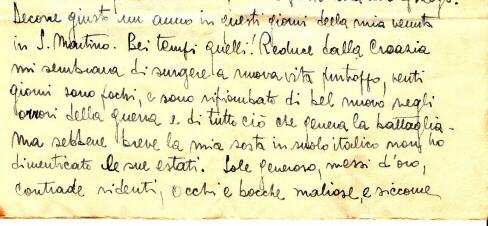 Decorre giusto un anno in questi giorni della mia venuta
in S. Martino. Bei tempi quelli! Reduce dalla Croazia
mi sembrava di surgere a nuova vita purtroppo, venti
giorni sono pochi, e sono ripiombato di bel nuovo negli
orrori della guerra e di tutto ciò che genera la battaglia -
Ma sebbene breve la mia sosta in suolo italico non ho
dimenticato le sue estati. Sole generoso, messi d'oro,
contrade ridenti, occhi e bocche maliose, e siccome